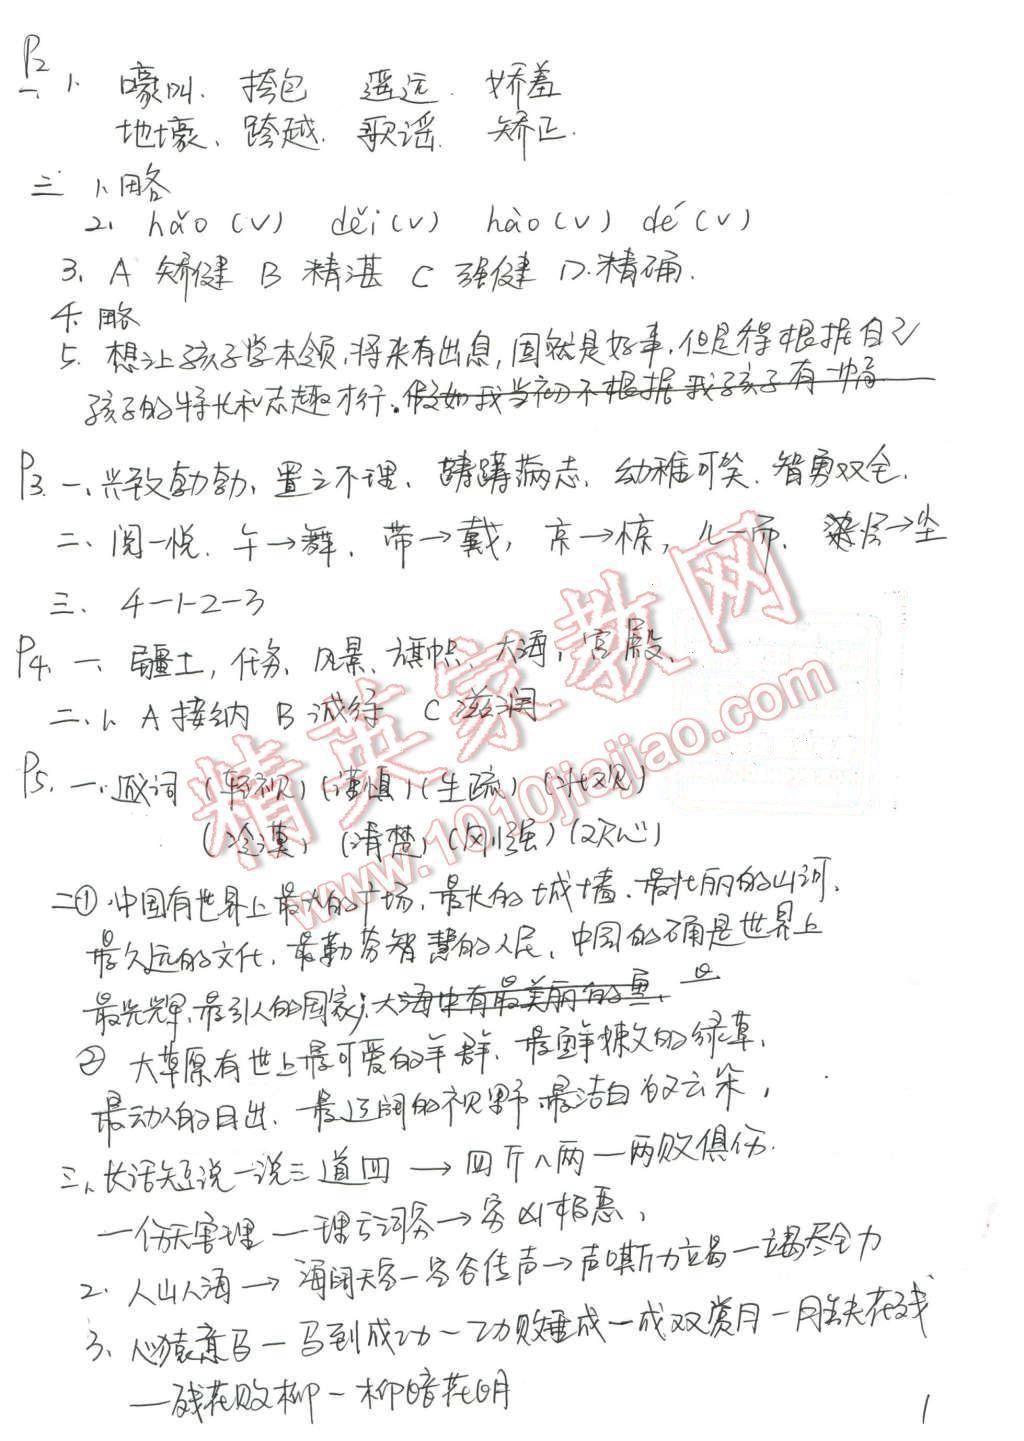 P2
一、1. 嚎叫. 挎包 遥远. 娇羞
地壕、跨越. 歌谣. 矫正.
三 1、略
2. hǎo (∨) děi (∨) hào (∨) dé (∨)
3、A 矫健 B 精湛 C 强健 D. 精确.
4. 略
5. 想让孩子学本领,将来有出息,固就是好事,但是得根据自己
孩子的特长和志趣才行.假如我当初不根据我孩子有
P3. 一、兴致勃勃、置之不理、踌躇满志、幼稚可笑、智勇双全.
二、阅一悦. 午→舞. 带→戴, 京→惊, 儿一而. 层→尘
三、4-1-2-3
P4. 一、疆土, 任务、风景、旗帜、大海, 宫殿、
二、1. A 接纳 B 减行 C 滋润.
P5. 一. 反词 (轻视) (谨慎) (生疏) (悲观)
(冷漠) (清楚) (刚强) (灰心)
二① 中国有世界上最大的广场、最长的城墙、最壮丽的山河、
最久远的文化、最勤劳智慧的人民, 中国的确是世界上
最光辉、最引人的国家; 大海中有最美丽的
② 大草原有世上最可爱的羊群、最鲜嫩的绿草,
最动人的日出、最辽阔的视野、最洁白的云朵,
三、长话短说一说三道四→四斤八两一两败俱伤.
一伤天害理一理亡词穷→穷凶极恶,
2. 人山人海→海阔天空一空谷传声→声嘶力竭一竭尽全力
3、心猿意马一马到成功一功败垂成一成双赏月一月缺花残
一残花败柳一柳暗花明
1
精英家教网
www.1010jiajiao.com